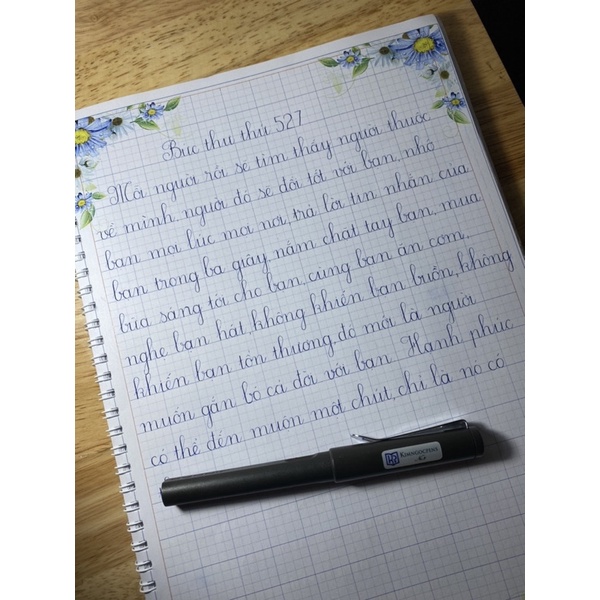 Bức thư thứ 527
Mỗi người rồi sẽ tìm thấy người thuộc
về mình, người đó sẽ đối tốt với bạn, nhớ
bạn mọi lúc mọi nơi, trả lời tin nhắn của
bạn trong ba giây, nắm chặt tay bạn, mua
bữa sáng tới cho bạn, cùng bạn ăn cơm,
nghe bạn hát, không khiến bạn buồn, không
khiến bạn tổn thương, đó mới là người
muốn gắn bó cả đời với bạn. Hạnh phúc
có thể đến muộn một chút, chỉ là nó có